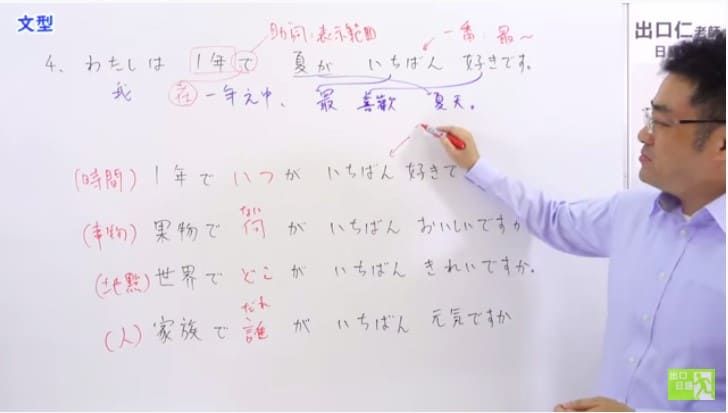 文型
出口仁老師
助詞:表示範囲
一番:最~
4、わたしは 1年で 夏が いちばん 好きです。
我 在 一年之中、最 喜歡 夏天。
(時間) 1年で いつが いちばん 好きで
(事物) 果物で 何が いちばん おいしいですか
なに
(地點) 世界で どこが いちばん きれいですか。
だれ
(人) 家族で 誰が いちばん 元気ですか
出口
日語